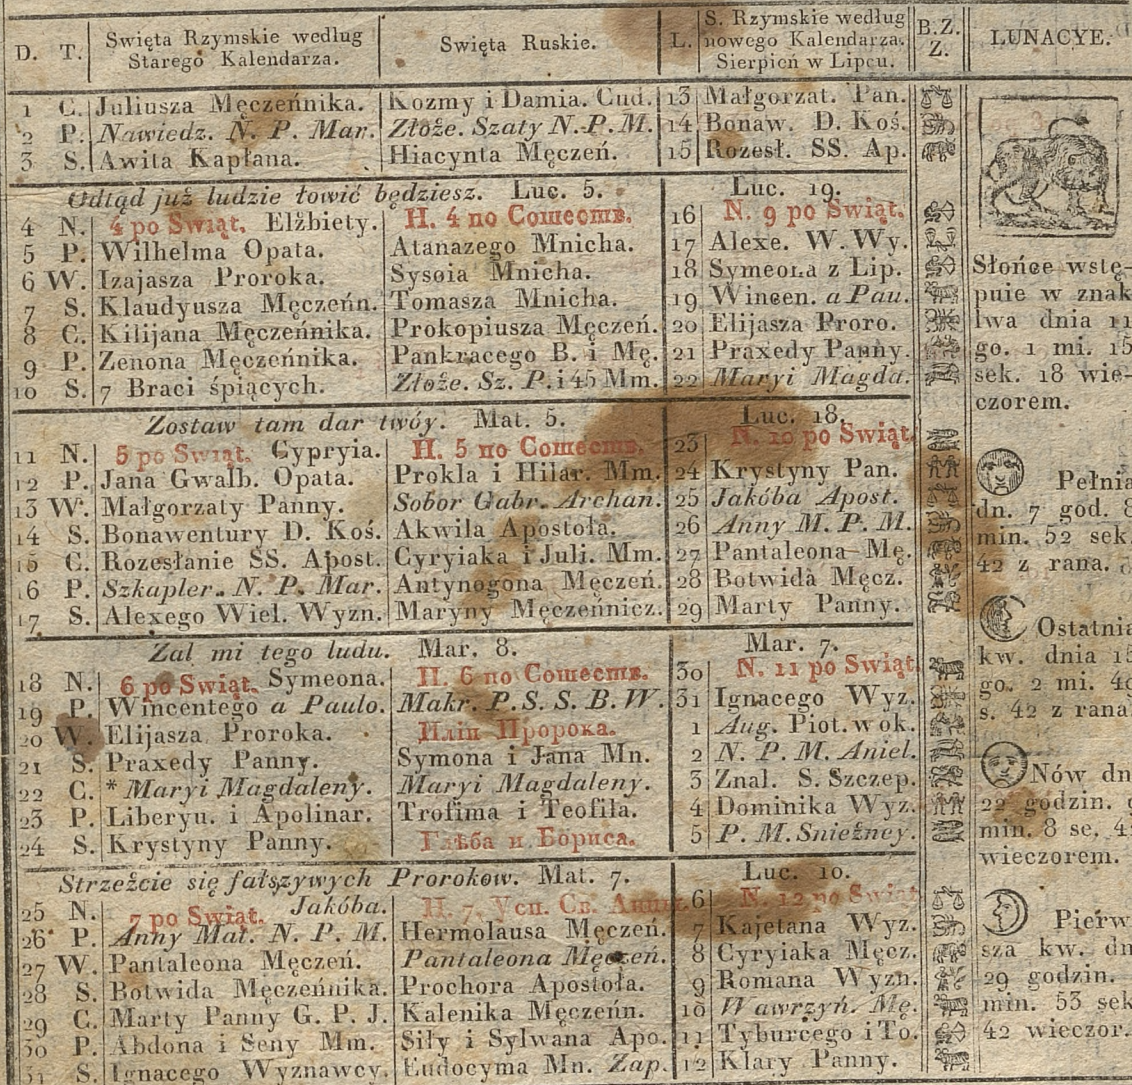 D. T. Swięta Rzymskie według Starego Kalendarza. Swięta Ruskie. L. S. Rzymskie według nowego Kalendarza. Sierpień w Lipcu. B.Z. Z. LUNACYE.
1 C. Juliusza Męczeńnika. Kozmy i Damia. Cud. 13 Małgorzat. Pan.
2 P. Nawiedz. N. P. Mar. Złoże. Szaty N.P.M. 14 Bonaw. D. Koś.
3 S. Awita Kapłana. Hiacynta Męczeń. 15 Rozesł. SS. Ap.
Odtąd już ludzie łowić będziesz. Luc. 5. Luc. 19.
4 N. 4 po Swiąt. Elżbiety. Н. 4 по Сошеств. 16 N. 9 po Swiąt.
5 P. Wilhelma Opata. Atanazego Mnicha. 17 Alexe. W. Wy.
6 W. Izajasza Proroka. Sysoia Mnicha. 18 Symeona z Lip.
7 S. Klaudyusza Męczeńn. Tomasza Mnicha. 19 Wincen. a Pau.
8 C. Kilijana Męczeńnika. Prokopiusza Męczeń. 20 Elijasza Proro.
9 P. Zenona Męczeńnika. Pankracego B. i Mę. 21 Praxedy Panny.
10 S. 7 Braci śpiących. Złoże. Sz. P. i 45 Mm. 22 Maryi Magda.
Zostaw tam dar twóy. Mat. 5. Luc. 18.
11 N. 5 po Swiąt. Cypryia. Н. 5 по Сошеств. 23 N. 10 po Swiąt.
12 P. Jana Gwalb. Opata. Prokla i Hilar. Mm. 24 Krystyny Pan.
13 W. Małgorzaty Panny. Sobor Gabr. Archan. 25 Jakóba Apost.
14 S. Bonawentury D. Koś. Akwila Apostoła. 26 Anny M. P. M.
15 C. Rozesłanie SS. Apost. Cyryiaka i Juli. Mm. 27 Pantaleona Mę.
16 P. Szkapler. N. P. Mar. Antynogona Męczeń. 28 Botwida Męcz.
17 S. Alexego Wiel. Wyzn. Maryny Męczeńnicz. 29 Marty Panny.
Zal mi tego ludu. Mar. 8. Mar. 7.
18 N. 6 po Swiąt. Symeona. Н. 6 по Сошеств. 30 N. 11 po Swiąt.
19 P. Wincentego a Paulo. Makr. P. S. S. B. W. 31 Ignacego Wyz.
20 W. Elijasza Proroka. Иліи Пророка. 1 Aug. Piot. w ok.
21 S. Praxedy Panny. Symona i Jana Mn. 2 N. P. M. Aniel.
22 C. * Maryi Magdaleny. Maryi Magdaleny. 3 Znal. S. Szczep.
23 P. Liberyu. i Apolinar. Trofima i Teofila. 4 Dominika Wyz.
24 S. Krystyny Panny. Глѣба и Бориса. 5 P. M. Snieżney.
Strzeżcie się fałszywych Prorokow. Mat. 7. Luc. 10.
25 N. 7 po Swiąt. Jakóba. Н. 7. Усп. Св. Анны. 6 N. 12 po Swiąt
26 P. Anny Mat. N. P. M. Hermolausa Męczeń. 7 Kajetana Wyz.
27 W. Pantaleona Męczeń. Pantaleona Męczeń. 8 Cyryiaka Męcz.
28 S. Botwida Męczeńnika. Prochora Apostoła. 9 Romana Wyzn.
29 C. Marty Panny G. P. J. Kalenika Męczeńn. 10 Wawrzyń. Mę.
30 P. Abdona i Seny Mm. Siły i Sylwana Apo. 11 Tyburcego i To.
31 S. Ignacego Wyznawcy. Eudocyma Mn. Zap. 12 Klary Panny.
Słońce wstę-
puie w znak
lwa dnia 11
go. 1 mi. 15
sek. 18 wie-
czorem.
Pełnia
dn. 7 god. 8
min. 52 sek.
42 z rana.
Ostatnia
kw. dnia 15
go. 2 mi. 49
s. 42 z rana
Nów dn
22 godzin. 9
min. 8 se. 42
wieczorem.
Pierw
sza kw. dn
29 godzin.
min. 53 sek
42 wieczor.